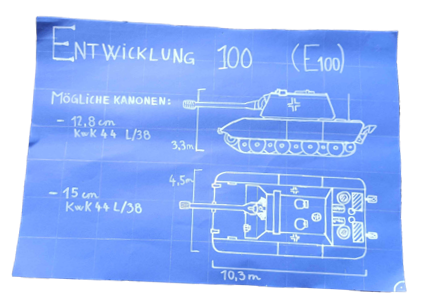 ENTWICKLUNG 100 (E100)
MÖGLICHE KANONEN:
- 12,8 cm
KwK 44 L/38
3,3m
4,5m
- 15 cm
KwK 44 L/38
10,3m